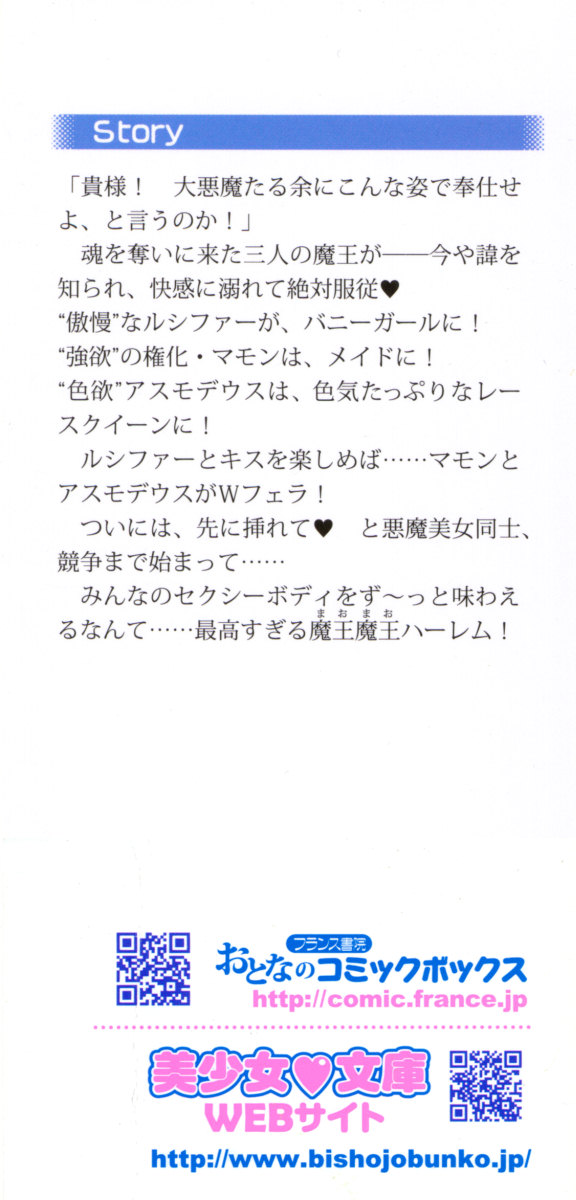 Story
「貴様！　大悪魔たる余にこんな姿で奉仕せ
よ、と言うのか！」
　魂を奪いに来た三人の魔王が――今や諱を
知られ、快感に溺れて絶対服従♥
“傲慢”なルシファーが、バニーガールに！
“強欲”の権化・マモンは、メイドに！
“色欲”アスモデウスは、色気たっぷりなレー
スクイーンに！
　ルシファーとキスを楽しめば……マモンと
アスモデウスがWフェラ！
　ついには、先に挿れて♥　と悪魔美女同士、
競争まで始まって……
　みんなのセクシーボディをず～っと味わえ
まおまお
るなんて……最高すぎる魔王魔王ハーレム！
フランス書院
おとなのコミックボックス
http://comic.france.jp
美少女♥文庫
WEBサイト
http://www.bishojobunko.jp/